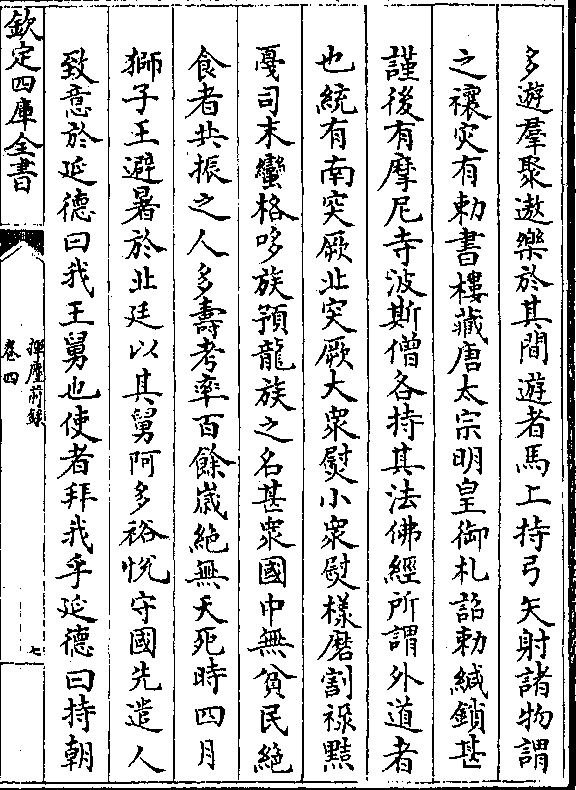 多遊羣聚遨樂於其間遊者馬上持弓矢射諸物謂
之禳灾有勅書樓藏唐太宗明皇御札詔勅緘鎖甚
謹後有摩尼寺波斯僧各持其法佛經所謂外道者
也統有南突厥北突厥大衆熨小衆熨樣磨割祿黠
戞司末蠻格哆族預龍族之名甚衆國中無貧民絶
食者共振之人多壽考率百餘嵗絶無夭死時四月
獅子王避暑於北廷以其舅阿多裕悅守國先遣人
致意於延德曰我王舅也使者拜我乎延德曰持朝
欽定四庫全書
揮麈前録
卷四
七